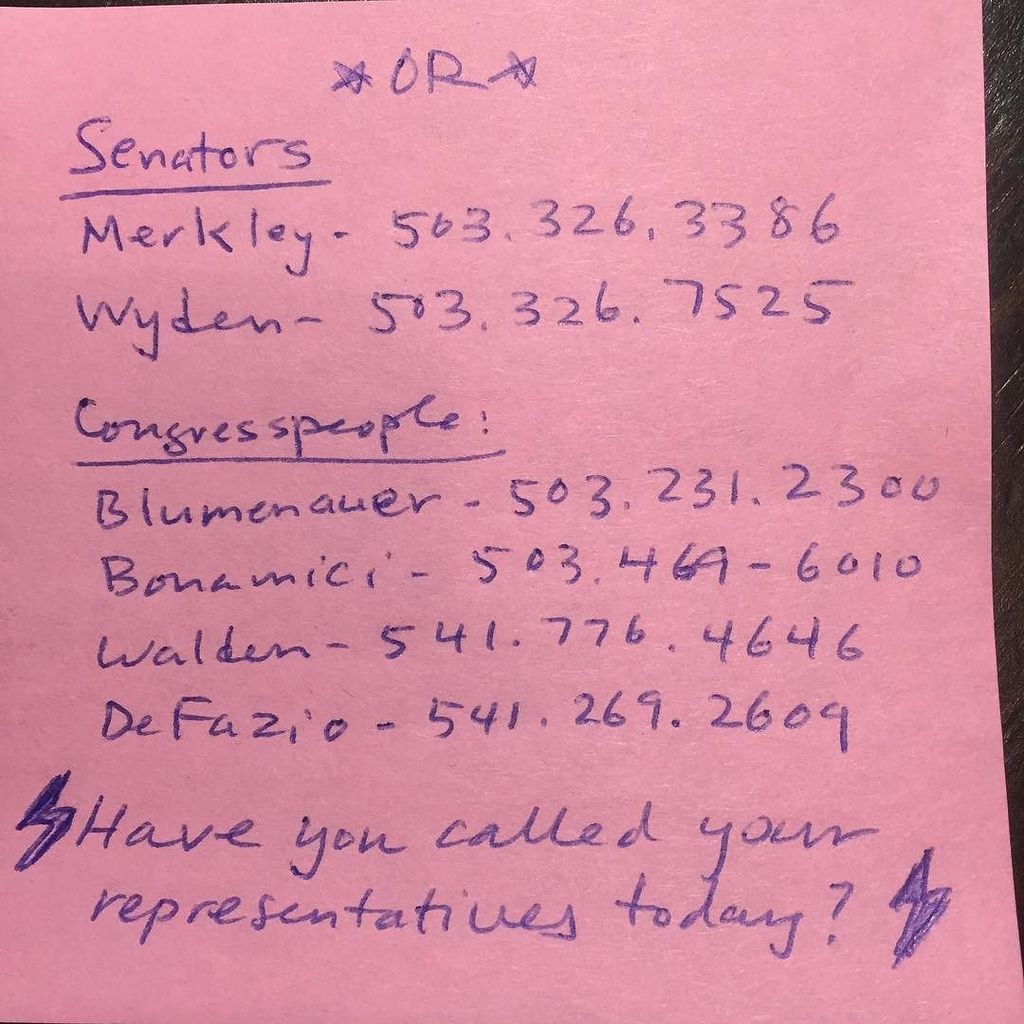 *OR*
Senators
Merkley - 503.326.3386
Wyden - 503.326.7525
Congresspeople:
Blumenauer - 503.231.2300
Bonamici - 503.469-6010
Walden - 541.776.4646
DeFazio - 541.269.2609
Have you called your
representatives today?